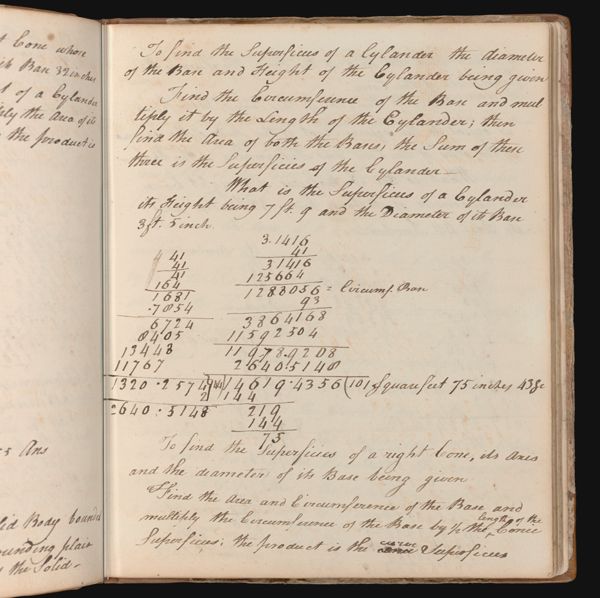 t Cone whose
its Base 32 inches
t of a Cylander
iply the Area of its
the product is
To find the Superficies of a Cylander the diameter
of the Base and Height of the Cylander being given
Find the Circumference of the Base and mul
tiply it by the Length of the Cylander; then
find the Area of both the Bases, the Sum of these
three is the Superficies of the Cylander—
What is the Superficies of a Cylander
its Height being 7 ft. 9 and the Diameter of its Base
3 ft. 5 inch.
3.1416
41
41 31416
41 125664
41 1288056 = Circumf. Base
164 93
1681 3864168
.7854 11592504
6724 11978.9208
8405 2640.5148
13448
11767
1320.2574 144)14619.4356(101 Square feet 75 inches 435c
2 144
2640.5148 219
144
75
To find the Superficies of a right Cone, its Axes
and the diameter of its Base being given
Find the Area and Circumference of the Base, and
multiply the Circumference of the Base by ½ the length of the Conic
Superficies; the product is the curve Superficies
5 Ans
lid Body bounded
ounding plain
the Solid—